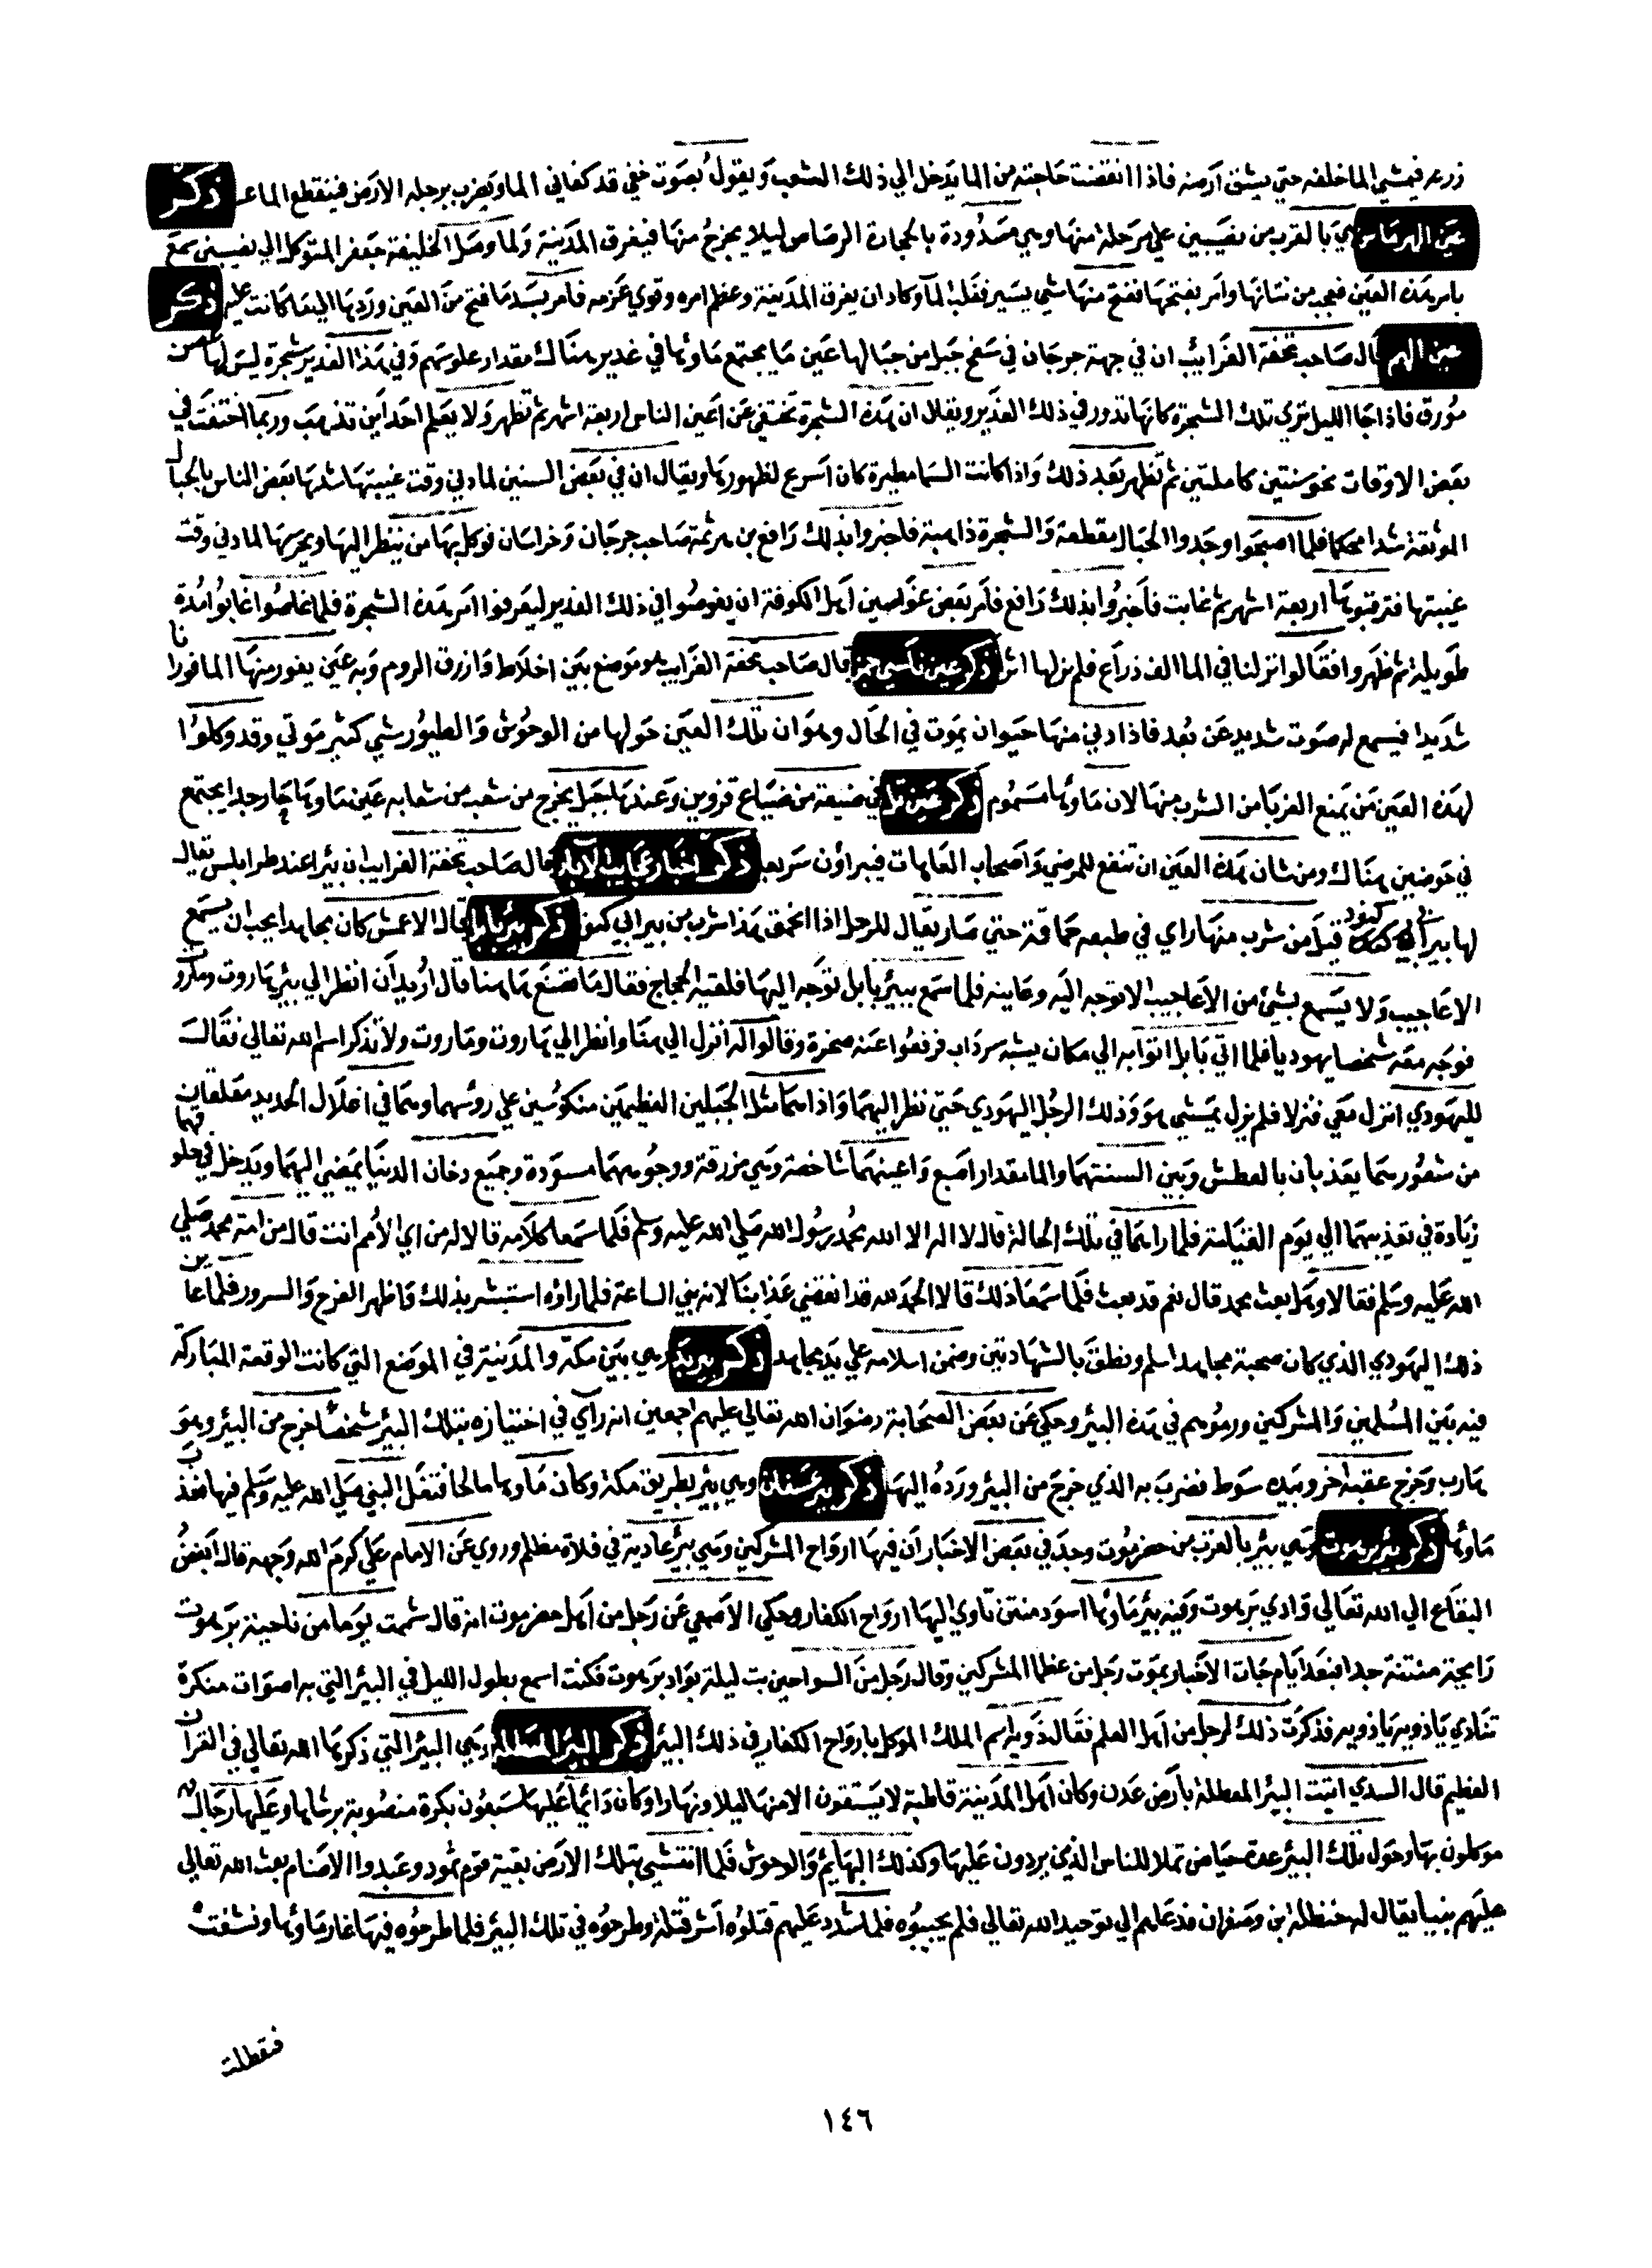 زرعه فيمشي الما خلفه حتي يشق ارضه فاذا انقضت حاجته من الما يدخل الي ذلك الشعب ويقول بصوت خفي قد كفاني الما ويضرب برجله الارض فينقطع الما عنه ذكر
عين الهرماس هي بالقرب من نصيبين علي مرحلة منها وهي مسدودة بالحجارة الرصاص ليلا يخرج منها فيغرق المدينة ولما وصل الخليفة جعفر المتوكل الي نصيبين سمع
بامر هذه العين فعجب من شانها وامر بفتحها ففتح منها شي يسير فغلب لما وكاد ان يغرق المدينة وعظم امره وقوي عزمه فامر بسد ما فتح من العين وردها اليما كانت عليه ذكر
عين الهم قال صاحب تحفة الغرايب ان في جهة جرجان في سفح جبل من جبالها عين ما يجتمع ماؤها في غدير هناك مقدار علوسهم وفي هذا الغدير شجرة ليس لها غصن
مورق فاذا جا الليل تري تلك الشجرة كانها تدور في ذلك الغدير ويقال ان هذه الشجرة تختفي عن اعين الناس اربعة اشهر ثم تظهر ولا يعلم احد اين تذهب وربما اختفت في
بعض الاوقات نحو سنتين كاملتين ثم تظهر بعد ذلك واذا كانت السما مطيرة كان اسرع لظهورها ويقال ان في بعض السنين لما دني وقت غيبتها شدها بعض الناس بالحبال
الموثقة شدا محكما فلما اصبحوا وجدوا الحبال مقطعة والشجرة ذاهبة فاخبروا بذلك رافع بن هرثمة صاحب جرجان وخراسان فوكل بها من ينظر اليها ويحرسها لما دني وقت
غيبتها فترقبوها اربعة اشهر ثم غابت فاخبروا بذلك رافع فامر بعض غواصين اهل الكوفة ان يغوصوا في ذلك الغدير ليعرفوا امر هذه الشجرة فلما غاصوا غابوا مدة
طويلة ثم ظهروا فقالوا نزلنا في الما الف ذراع فلم نر لها اثرا ذكر عين قال صاحب تحفة الغرايب هو موضع بين اخلاط وازرق الروم وبه عين يفور منها الما فورانا
شديدا فيسمع له صوت شديد عن بعد فاذا دني منها حيوان يموت في الحال وهو ان تلك العين حولها من الوحوش والطيور شي كثير موتي وقد وكلوا
لهذه العين من يمنع الغربا من الشرب منها لان ماؤها مسموم ذكر عين في ضيعة من ضياع قزوين وعندها جبل يخرج من شعب من شعابه عين ماؤها حار جدا يجتمع
في حوضين هناك ومن شان هذه العين ان تنفع للمرضي واصحاب العاهات فيبراؤن سريعا ذكر اخبار عجايب الابار قال صاحب تحفة الغرايب ان بئرا عند طرابلس يقال
لها بير ابي كنود قيل من شرب منها راي في طبعه حماقة حتي صار يقال للرجل اذا انحمق هذا شرب من بير ابي كنود ذكر بئر بابل قال الاعمش كان مجاهد يحب ان يسمع
الاعاجيب ولا يسمع بشيء من الاعاجيب الا توجه اليه وعاينه فلما سمع ببئر بابل توجه اليها فلقيه الحجاج فقال ما تصنع هاهنا قال اريد ان انظر الي بئر هاروت وماروت
فوجه معه شخصا يهوديا فلما اتي بابل اتوا به الي مكان يشبه سرداب فرفعوا عنه صخرة وقالوا له انزل الي هنا وانظر الي هاروت وماروت ولا تذكر اسم الله تعالي فقال
لليهودي انزل معي فنزلا فلم يزل يمشي هو وذلك الرجل اليهودي حتي نظر اليهما واذا هما مثل الجبلين العظيمين منكوسين علي روسهما وهما في اغلال الحديد معلقين
من شعورهما يعذبان بالعطش وبين السنتهما والما مقدار اصبع واعينهما شاخصة وهي مزرقة ووجوههما مسودة وجميع دخان الدنيا يمضي اليهما ويدخل في حلوقهما
زيادة في تعذيبهما الي يوم القيامة فلما راهما في تلك الحالة قال لا اله الا الله محمد رسول الله صلي الله عليه وسلم فلما سمعا كلامه قالا له من اي الامم انت قال من امة محمد صلي
الله عليه وسلم فقالا وهل بعث محمد قال نعم قد بعث فلما سمعا ذلك قالا الحمد لله قد انقضي عذابنا لانه نبي الساعة فلما راؤه استبشر بذلك واظهر الفرح والسرور فلما عاين
ذلك اليهودي الذي كان صحبة مجاهد اسلم ونطق بالشهادتين وضمن اسلامه علي يد مجاهد ذكر بير بدر وهي بين مكة والمدينة في الموضع التي كانت الوقعة المباركة
فيه بين المسلمين والمشركين ورموهم في هذه البئر وحكي عن بعض الصحابة رضوان الله تعالي عليهم اجمعين انه راي في اختيازه بتلك البئر شخصا خرج من البئر وهو
هارب وخرج عقبه اخر وبيده سوط فضرب به الذي خرج من البئر ورده اليها ذكر بير عسفان وهي بئر بطريق مكة وكان ماؤها مالحا فتفل النبي صلي الله عليه وسلم فيها فعذب
ماؤها ذكر بئر برهوت وهي بئر بالقرب من حضرموت وجد في بعض الاخبار ان فيها ارواح المشركين وهي بئر عادية في فلاة مظلم وروي عن الامام علي كرم الله وجهه قال ابغض
البقاع الي الله تعالي وادي برهوت وفيه بئر ماؤها اسود منتن تاوي اليها ارواح الكفار وحكي الاصمعي عن رجل من اهل حضرموت انه قال شممت يوما من ناحية برهوت
رايحة منتنة جدا فبعد ايام جات الاخبار بموت رجل من عظما المشركين وقال رجل من السواحين بت ليلة بواد برهوت فكنت اسمع بطول الليل في البئر التي به اصوات منكرة
تنادي ياذوبه ياذوبه فذكرت ذلك لرجل من اهل العلم فقال ذوبه اسم الملك الموكل بارواح الكفار في ذلك البئر ذكر البئر المعطلة وهي البئر التي ذكرها الله تعالي في القران
العظيم قال السدي اتيت البئر المعطلة بارض عدن وكان اهل المدينة قاطبة لا يستقون الا منها ليلا ونهارا وكان دائما عليها سبعون بكرة منصوبة برشايها وعليها رجال
موكلون بها وحول تلك البئر عدة حياض تملا للناس الذين يردون عليها وكذلك البهايم والوحوش فلما انتشي بتلك الارض بقية قوم ثمود وعبدوا الاصنام بعث الله تعالي
عليهم نبيا يقال له حنظلة ابن وصفوان فدعاهم الي توحيد الله تعالي فلم يجيبوه فلما شدد عليهم قتلوه اشر قتلة وطرحوه في تلك البئر فلما طرحوه فيها غار ماؤها ونشفت
فقطلة
١٤٦